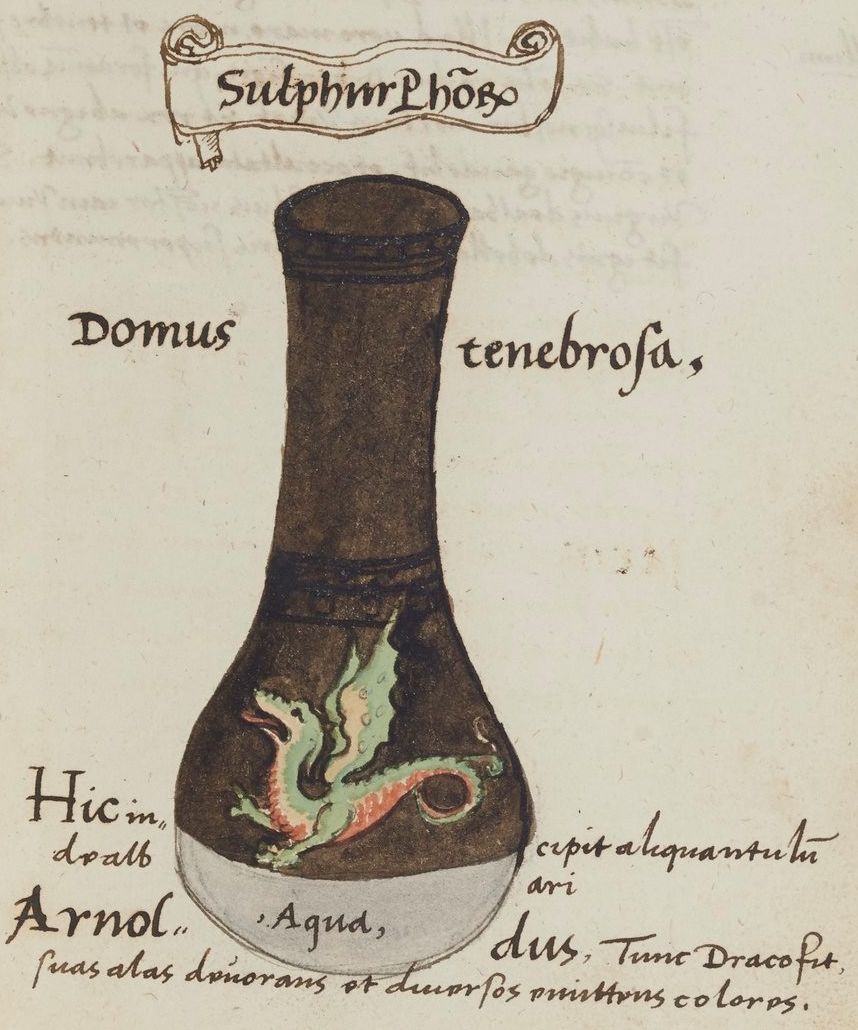 Sulphur Phōꝝ
Domus tenebroſa,
Hic in„ cipit aliquantulū
dealb ari
Arnol„ dus, Tunc Draco fit,
, Aqua,
ſuas alas deuorans et diuerſos emittens colores.